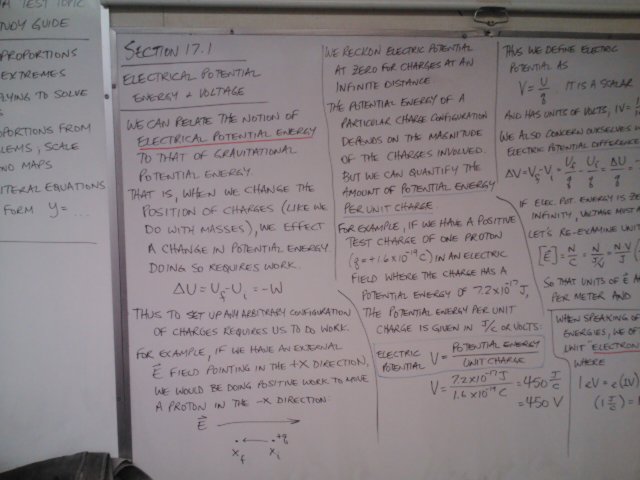 TEST TOPIC
STUDY GUIDE
PROPORTIONS
EXTREMES
TO SOLVE
FROM
SCALE
MAPS
LITERAL EQUATIONS
FORM y= ...
SECTION 17.1
ELECTRICAL POTENTIAL
ENERGY + VOLTAGE
WE CAN RELATE THE NOTION OF
ELECTRICAL POTENTIAL ENERGY
TO THAT OF GRAVITATIONAL
POTENTIAL ENERGY
THAT IS, WHEN WE CHANGE THE
POSITION OF CHARGES (LIKE WE
DO WITH MASSES), WE EFFECT
A CHANGE IN POTENTIAL ENERGY.
DOING SO REQUIRES WORK.
ΔU = Uf - Ui = -W
THUS TO SET UP ANY ARBITRARY CONFIGURATION
OF CHARGES REQUIRES US TO DO WORK.
FOR EXAMPLE, IF WE HAVE AN EXTERNAL
E⃗ FIELD POINTING IN THE +X DIRECTION,
WE WOULD BE DOING POSITIVE WORK TO MOVE
A PROTON IN THE -X DIRECTION:
E⃗
+q
Xf Xi
WE RECKON ELECTRIC POTENTIAL
AT ZERO FOR CHARGES AT AN
INFINITE DISTANCE.
THE POTENTIAL ENERGY OF A
PARTICULAR CHARGE CONFIGURATION
DEPENDS ON THE MAGNITUDE
OF THE CHARGES INVOLVED.
BUT WE CAN QUANTIFY THE
AMOUNT OF POTENTIAL ENERGY
PER UNIT CHARGE
FOR EXAMPLE, IF WE HAVE A POSITIVE
TEST CHARGE OF ONE PROTON
(q = +1.6×10⁻¹⁹ C) IN AN ELECTRIC
FIELD WHERE THE CHARGE HAS A
POTENTIAL ENERGY OF 7.2×10⁻¹⁷ J,
THE POTENTIAL ENERGY PER UNIT
CHARGE IS GIVEN IN J/C OR VOLTS:
ELECTRIC POTENTIAL V = POTENTIAL ENERGY / UNIT CHARGE
V = 7.2×10⁻¹⁷ J / 1.6×10⁻¹⁹ C = 450 J/C
= 450 V
THUS WE DEFINE ELECTRIC
POTENTIAL AS
V = U/q. IT IS A SCALAR
AND HAS UNITS OF VOLTS, 1V =
WE ALSO CONCERN OURSELVES
ELECTRIC POTENTIAL DIFFERENCE
ΔV = Vf - Vi = Uf/q - Ui/q = ΔU/q =
IF ELEC. POT. ENERGY IS
INFINITY, VOLTAGE MUST
LET'S RE-EXAMINE
[E⃗] = N/C =
SO THAT UNITS OF E⃗
PER METER AND
WHEN SPEAKING OF
ENERGIES, WE
UNIT "ELECTRON
WHERE
1 eV = e(1V)
(1 J/C)